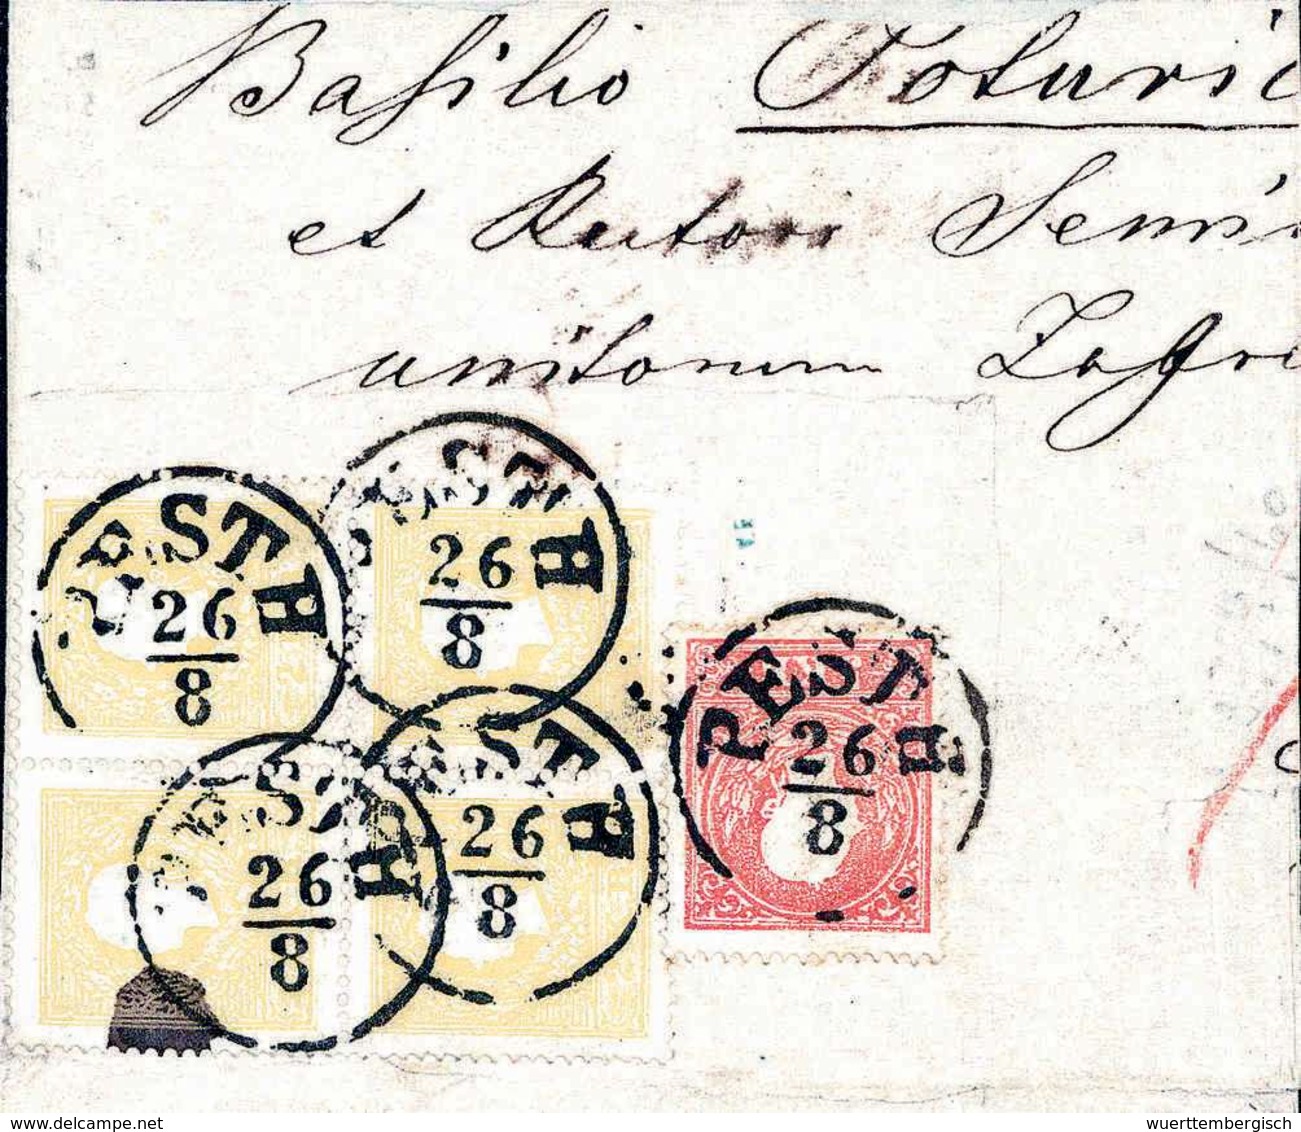 Basilio Toturic
et Rectori Semi
unitorum Zagre
PESTH
26
8
PESTH
26
8
PESTH
26
8
PESTH
26
8
PESTH
26
8
www.delcampe.net
wuerttembergisch